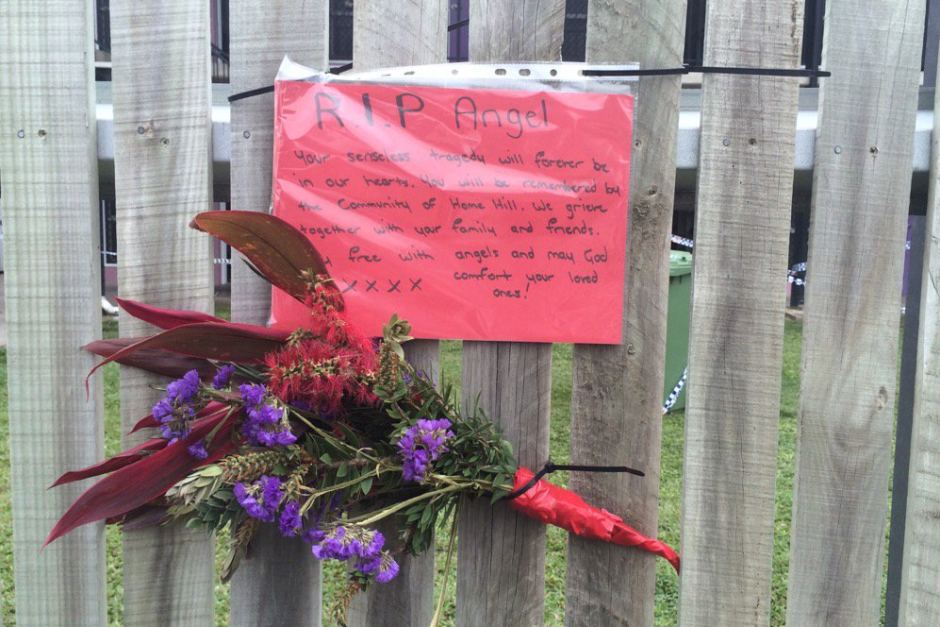 R.I.P Angel
Your senseless tragedy will forever be
in our hearts. You will be remembered by
the Community of Home Hill. We grieve
together with your family and friends.
free with angels and may God
XXXX comfort your loved
ones!